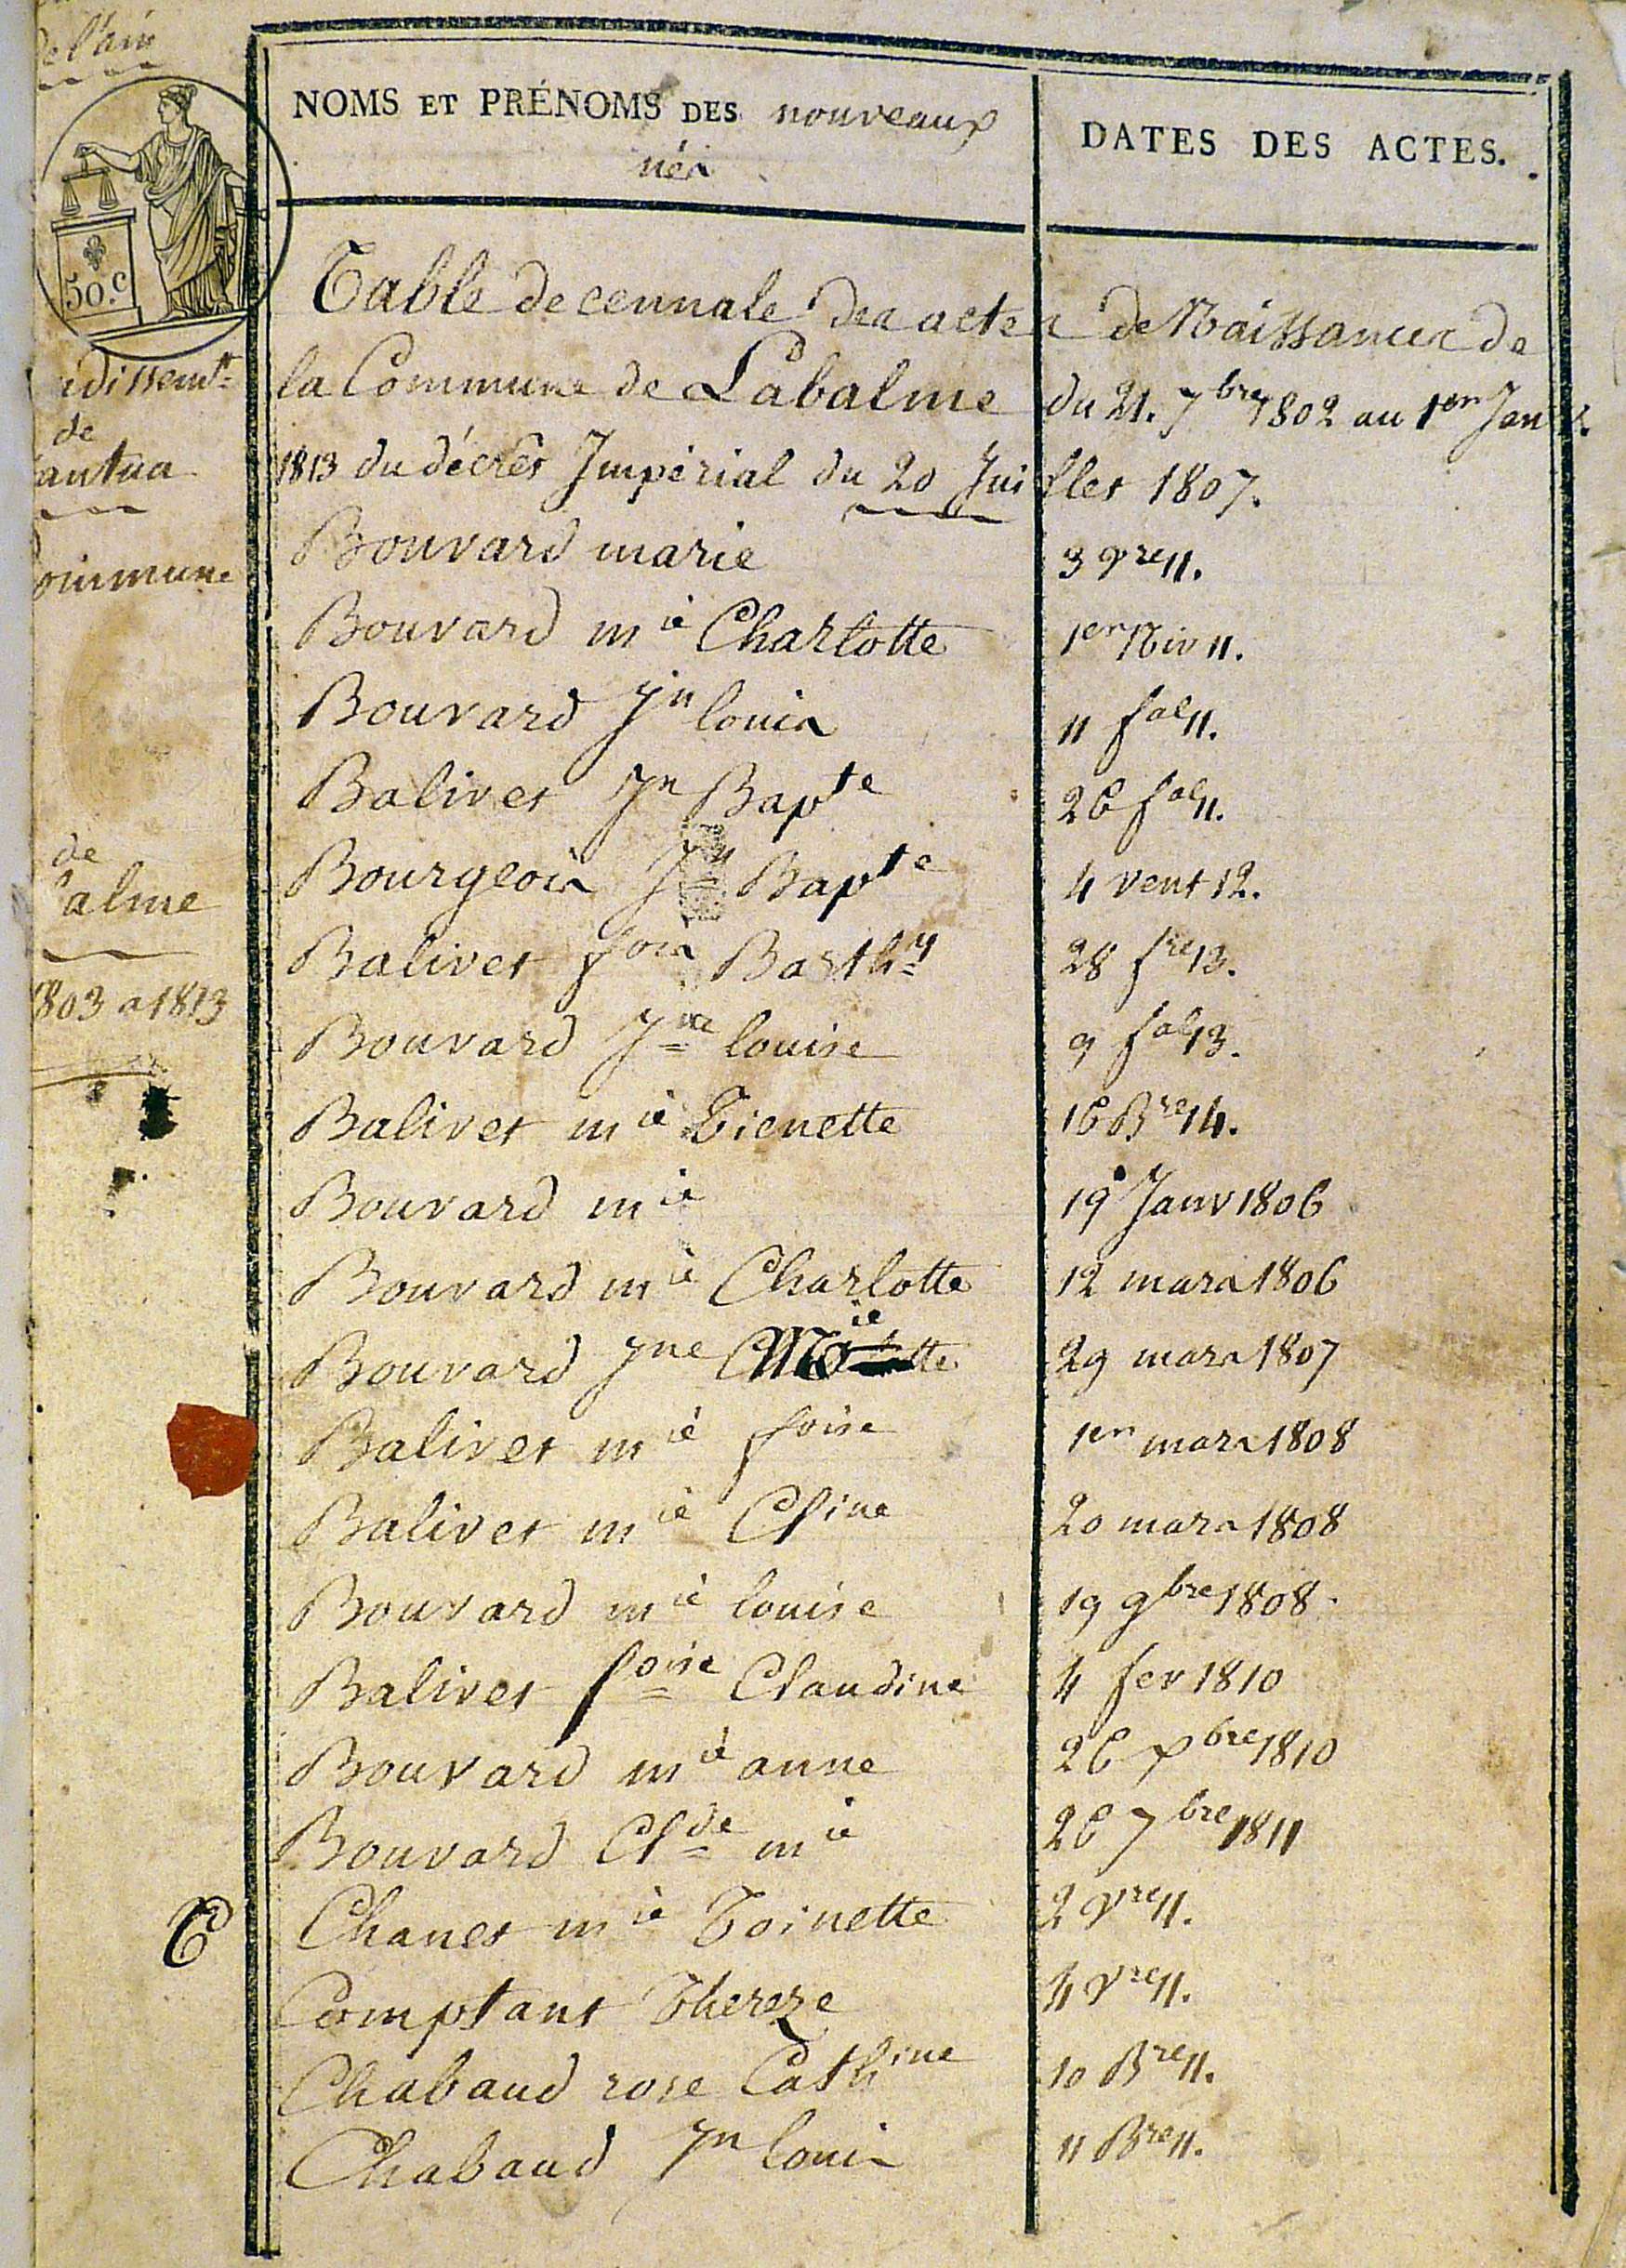 De l'ain
50.c
idissemt
de
antua
ommune
de
alme
1803 a 1813
C
NOMS ET PRÉNOMS DES nouveaux
nés
DATES DES ACTES.
Table decennale des actes de Naissances de
la Commune de Labalme du 21. 7bre 1802 au 1er Janv.
1813 du décret Impérial du 20 Juillet 1807.
Bouvard marie 3 vre 11.
Bouvard mie Charlotte 1er Niv 11.
Bouvard Jn louis 11 fal 11.
Balivet Jn Bapte 26 fal 11.
Bourgeois Jn Bapte 4 vent 12.
Balivet fois Barthy 28 fre 13.
Bouvard Jne louise 9 fal 13.
Balivet mie Tienette 16 Bre 14.
Bouvard mie 19 Janv 1806
Bouvard mie Charlotte 12 mars 1806
Bouvard Jne Mie 29 mars 1807
Balivet mie foise 1er mars 1808
Balivet mie Cline 20 mars 1808
Bouvard mie louise 19 9bre 1808.
Balivet foise Claudine 4 fev 1810
Bouvard mie anne 26 xbre 1810
Bouvard Clde mie 26 7bre 1811
Chanet mie Toinette 2 vre 11.
Comptant Thereze 4 vre 11.
Chabaud rose Cathine 10 Bre 11.
Chabaud Jn louis 11 Bre 11.